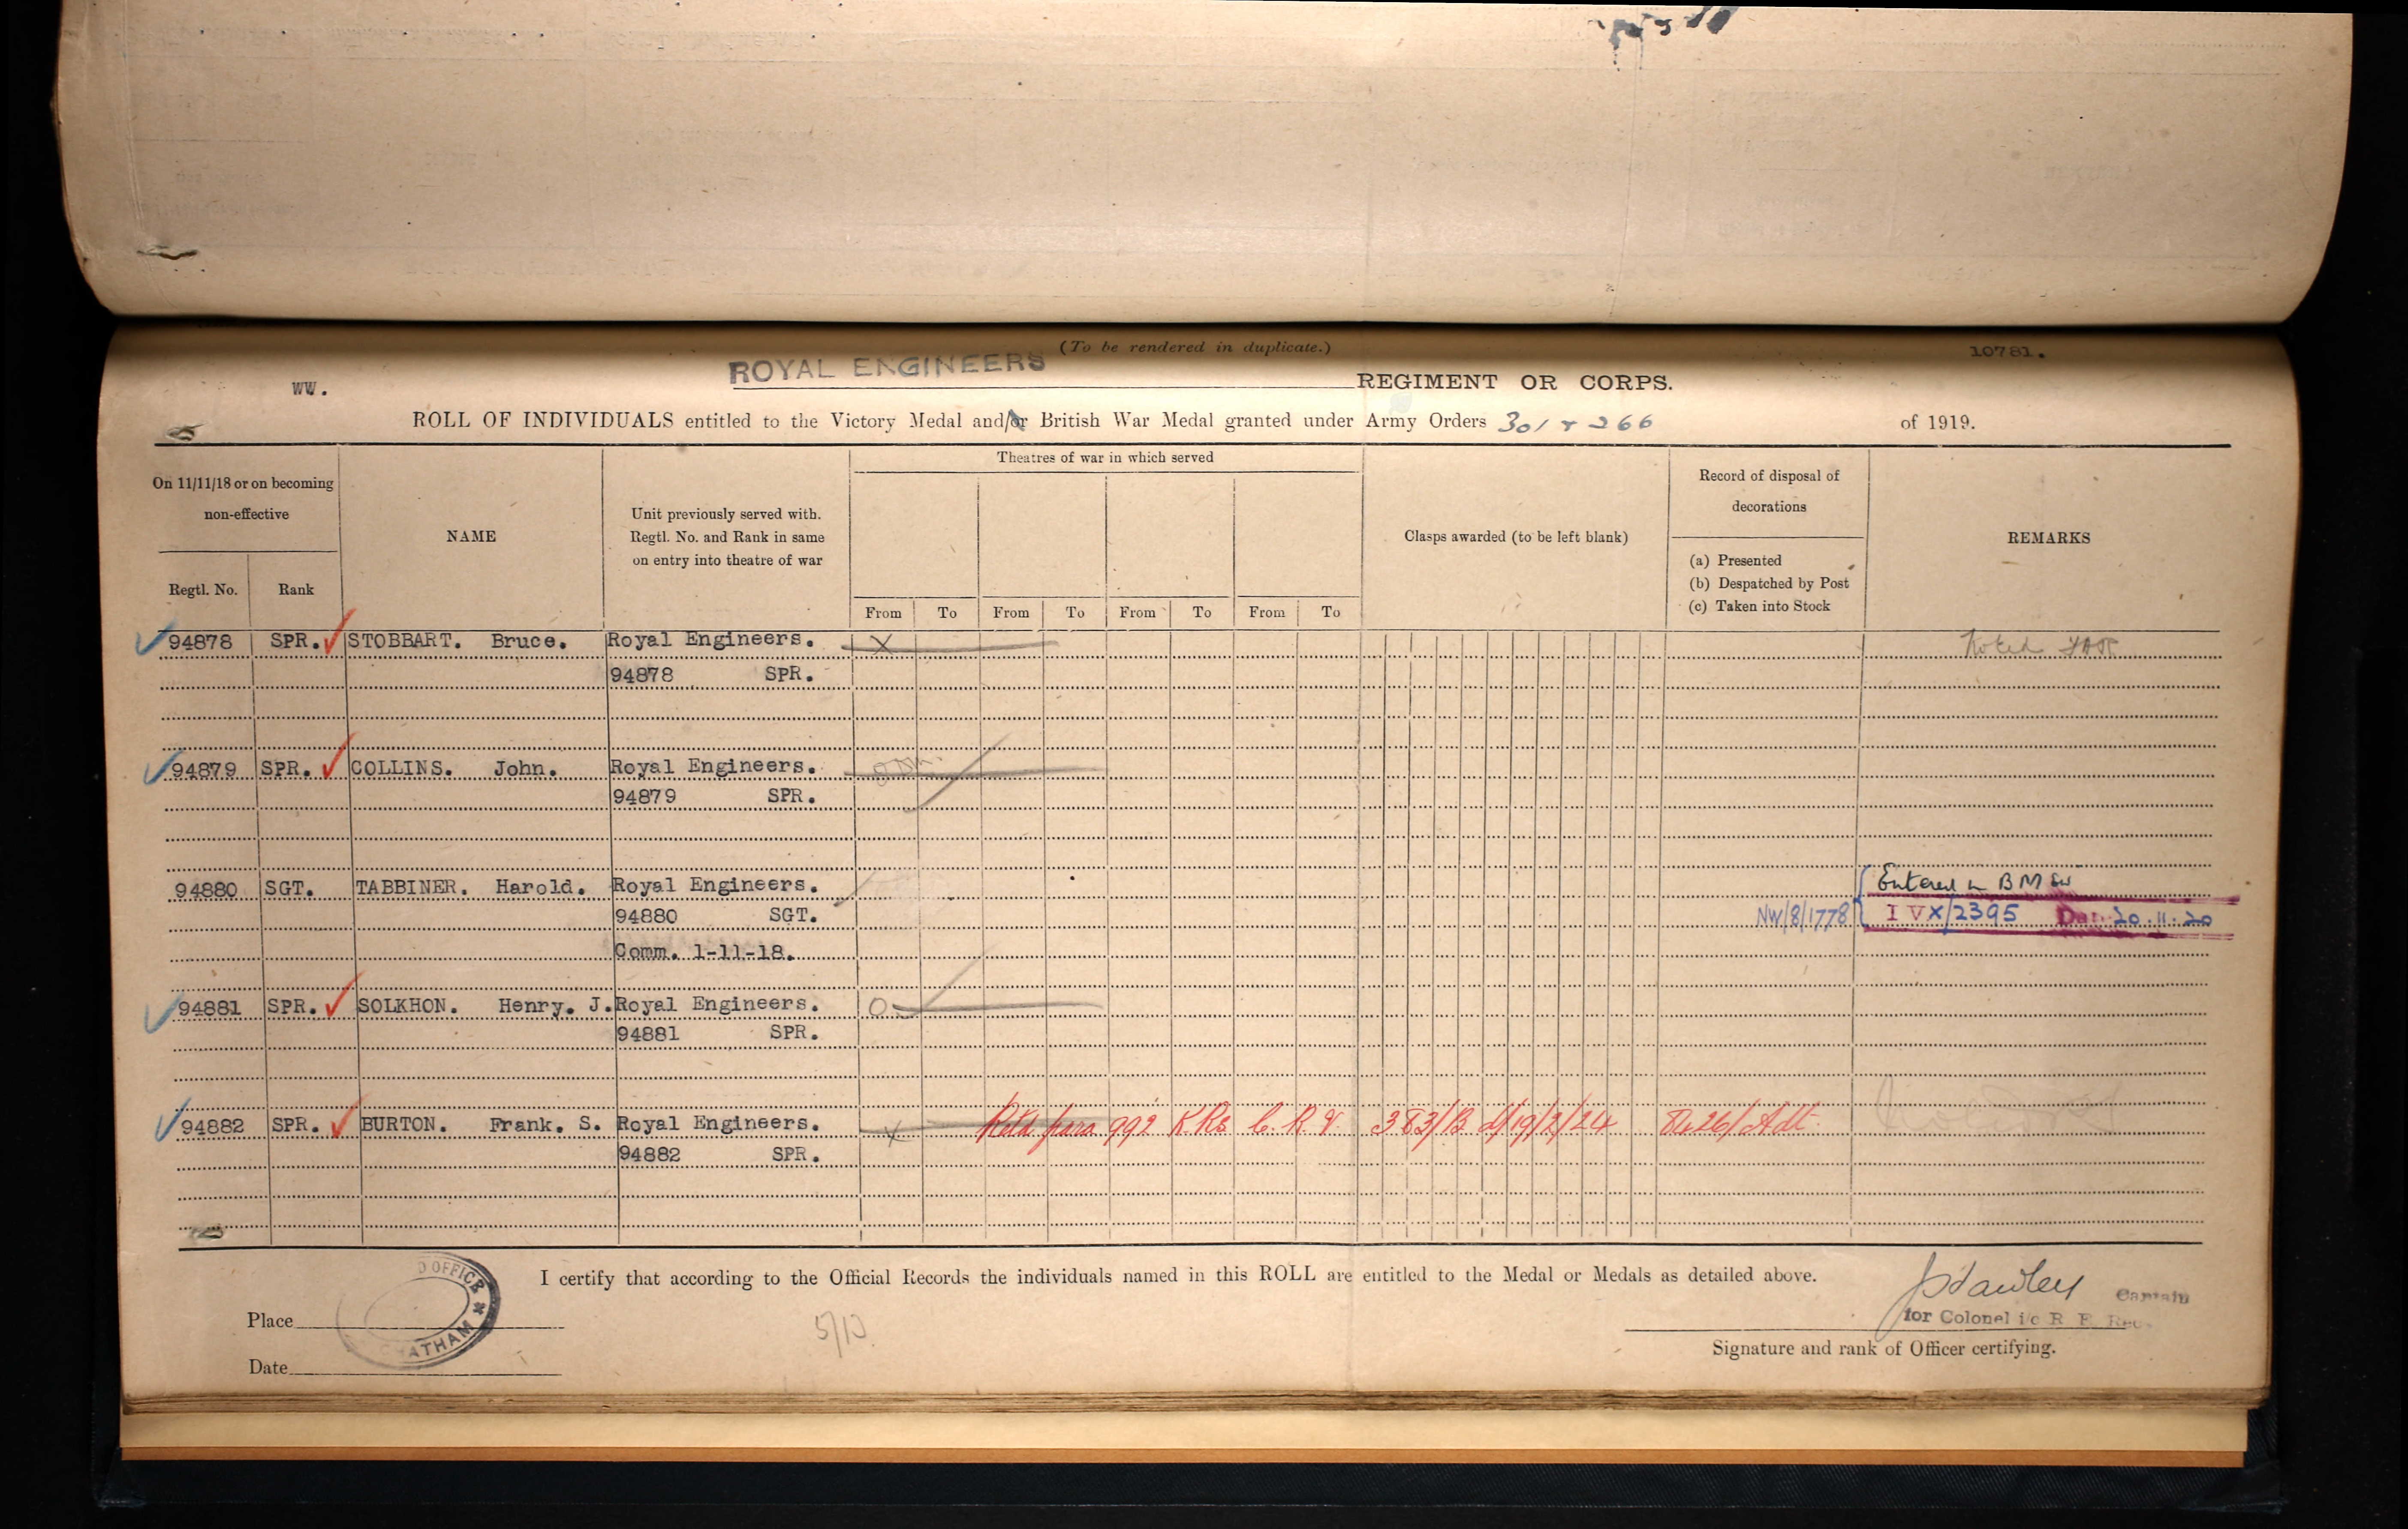 (To be rendered in duplicate.)
10781.
WW.
ROYAL ENGINEERS REGIMENT OR CORPS.
ROLL OF INDIVIDUALS entitled to the Victory Medal and/or British War Medal granted under Army Orders 301 & 266 of 1919.
On 11/11/18 or on becoming
non-effective
Regtl. No.
Rank
NAME
Unit previously served with.
Regtl. No. and Rank in same
on entry into theatre of war
Theatres of war in which served
From To From To From To From To
Clasps awarded (to be left blank)
Record of disposal of
decorations
(a) Presented
(b) Despatched by Post
(c) Taken into Stock
REMARKS
94878 SPR. STOBBART. Bruce. Royal Engineers. X Noted
94878 SPR.
94879 SPR. COLLINS. John. Royal Engineers.
94879 SPR.
94880 SGT. TABBINER. Harold. Royal Engineers. Entered in BM
94880 SGT. NW/8/1778 I VX/2395 20.11.20
Comm. 1-11-18.
94881 SPR. SOLKHON. Henry. J. Royal Engineers.
94881 SPR.
94882 SPR. BURTON. Frank. S. Royal Engineers. X Retd purs 992 K Rs C. R. V. 383/B d/19/2/24 Adt
94882 SPR.
I certify that according to the Official Records the individuals named in this ROLL are entitled to the Medal or Medals as detailed above.
D OFFICE
CHATHAM
Place
Date
5/10
Captain
for Colonel i/c R. E. Rec
Signature and rank of Officer certifying.